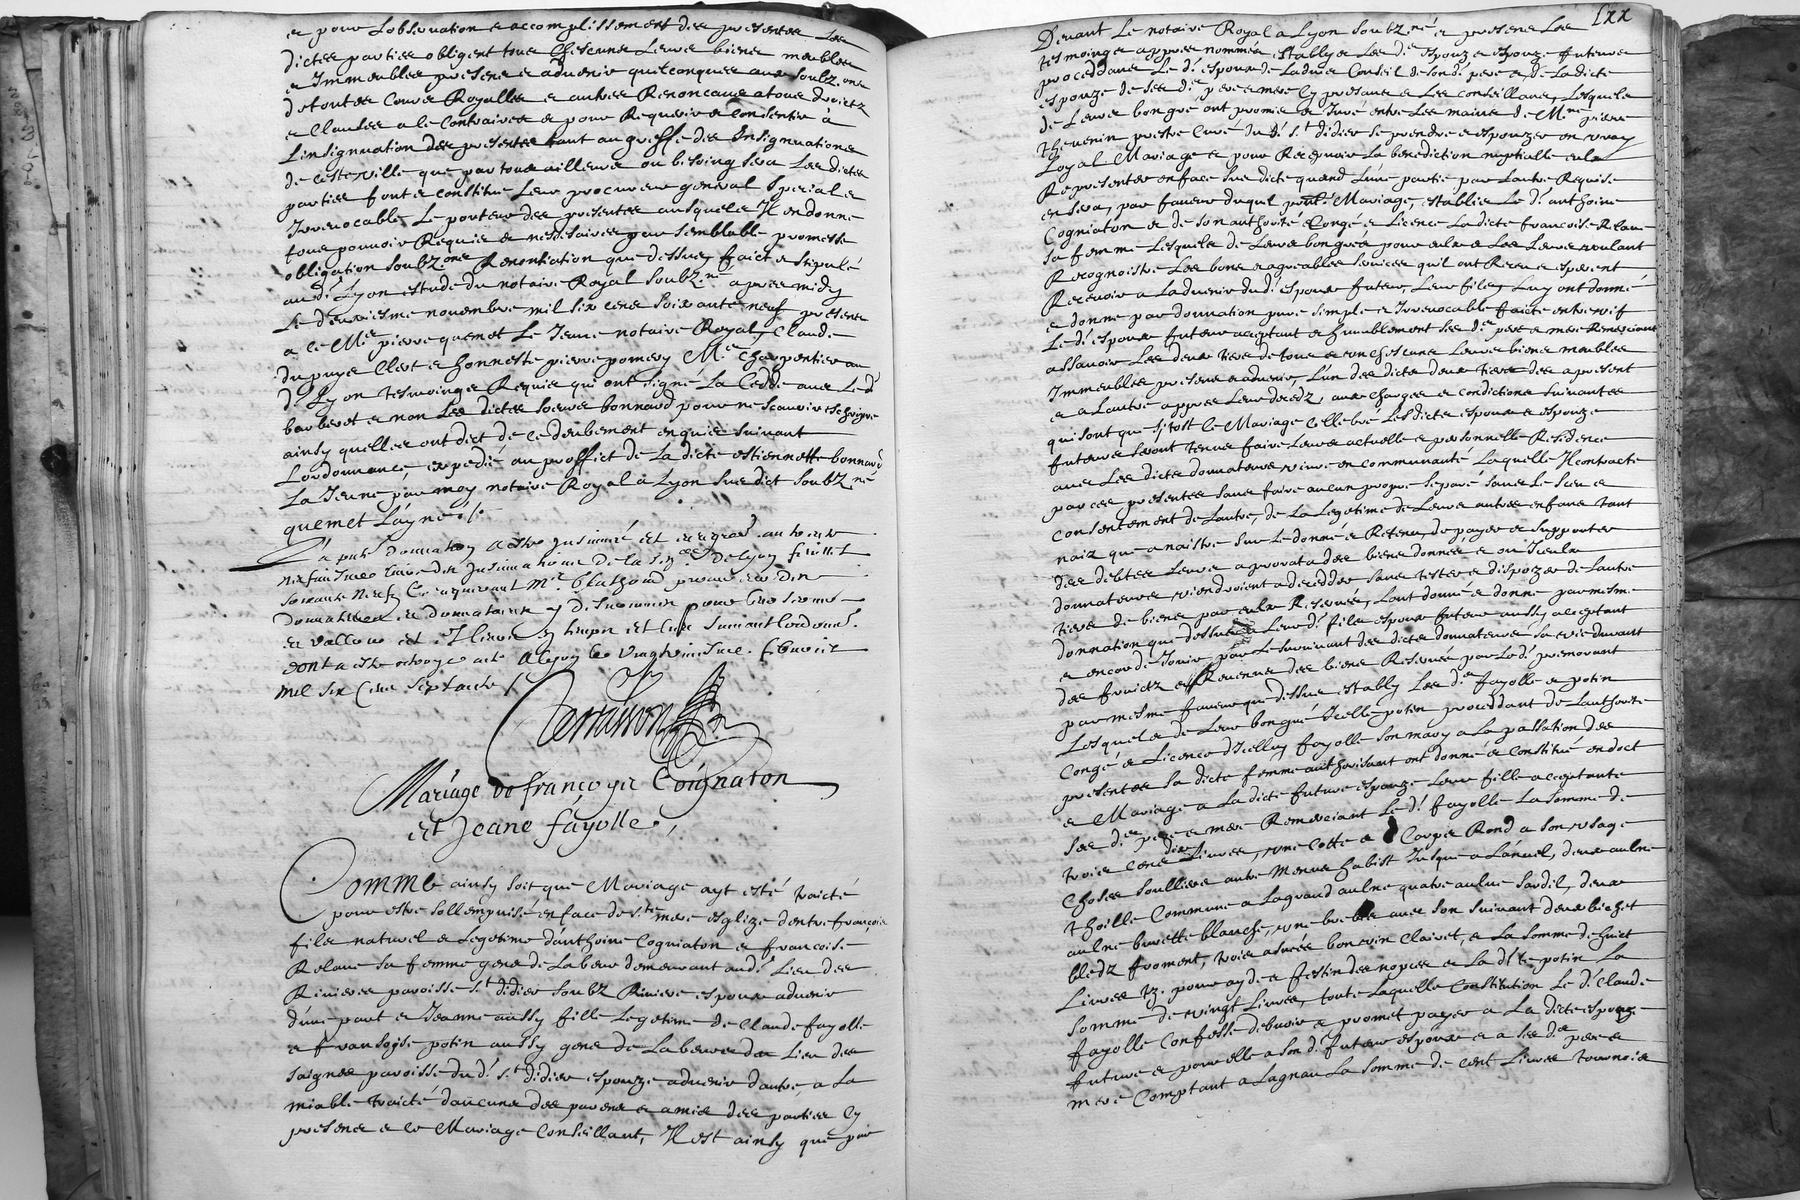 et pour Lobseruation et accomplissement des presentes Les
dictes parties obligent tous Chescuns Leurs biens meubles
et Immeubles presens et aduenir quelconques aux soubz.ons
de toutes Cours Royalles et autres Renonceans a tous droictz
et Clauses a ce Contraires et pour Requerir et Consentir a
Linsignuation des presentes tant au greffe des Insignuations
de ceste ville que par tous ailleurs ou besoing sera Les dictes
parties font et constitue Leur procureur general special et
Irreuocable Le porteur des presentes ausquels Il en donne
tous pouuoir Requis et nessesaires par semblable promesse
obligation soubz.ons Renontiation que dessus, faict et stipulé
aud.t Lyon estude du notaire Royal soubz.né apres midy
Le deuxiesme nouembre mil six cens soixante neuf presens
a ce M.e pierre quemet Le Jeune notaire Royal, Claude
dupuys Clerc et honneste pierre pomery M.e Charpentier au
d.t Lyon tesmoings Requis qui ont signé La Cedde auec Led.t
barberet et non Les dictes soeurs bonnard pour ne scauoir escripre
ainsy quelles ont dict de ce deubement enquis suiuant
Lordonnance expedié au proffict de La dicte estiennette bonnard
La Jeune par moy notaire Royal a Lyon susdict soubz.né
quemet Layné /.
La pnte donnation a esté Insinuée et enregrée au trente
neufuiesme liure des Insinuations de la sen.cée de Lyon feuillet
soixante neufz Ce requerant M.e
donnation et donnataire y desnommés pour
et valloir et seruir en temps et lieu suiuant lordonn.ce
dont a esté octroyé acte A Lyon le vingtroisiesme feburier
mil six Cens septante /
Mariage de françoys Coignaton
et Jeane fayolle,
Comme ainsy soit que Mariage ayt esté traicté
pour estre sollempnisé en face de s.te mere esglize dentre francois
fils naturel et Legetime danthoine Cogniaton et francoise
Relaue sa femme gens de Labeur demeurant aud.t Lieu des
Riuieres paroisse s.t didier soubz Riuiere espoux aduenir
dune part et Jeanne aussy fille Legetime de Claude fayolle
et fransoise potin aussy gens de Labeur du Lieu des
saignes paroisse dud.t s.t didier espouze aduenir dautre, a La
miable traicté daucuns des parens et amis des parties Cy
presens et ce Mariage Conseillant, Il est ainsy que par
Lxx
Deuant Le notaire Royal a Lyon soubz.né et presens Les
tesmoings appres nommés, establys Les d.ts espoux et espouze futeurs
proceddans Le d.t espoux de Laduis Conseil de sond.t pere et de La dicte
espouze de ses d.ts pere et mere Cy presans et Les conseillans, Lesquels
de Leurs bongré ont promis et Juré entre Les mains de M.re pierre
theuenin prestre Curé dud.t s.t didier se prendre et espouzer en vray
Loyal Mariage et pour Recepuoir La benediction nuptialle en La
Representer en face susdicte quand Lune partie par Lautre Requise
en sera, par faueur duquel pnt. Mariage, establis Le d.t anthoine
Cogniaton et de son authorité Congé et Licence La dicte francoise Relaue
sa femme Lesquels de Leurs bongrés pour eulx et Les Leurs voulant
Recognoistre Les bons et agreables seruices quil ont Receu et esperent
Receuoir a Laduenir dud.t espoux futeur, Leur fils Luy ont donné
et donne par donnation pure simple et Irreuocable faicte entre vif
Le d.t espoux futeur acceptant et humblement ses d.ts pere et mere Remerciant
assauoir Les deux tiers de tous et vn chescuns Leurs biens meubles
Immeubles presens et aduenir, Lun des dicts deux tiers des a present
et a Lautre appres Leur deceds, aux charges et condictions suiuantes
qui sont que sy tost Le Mariage Cellebré Les dicts espoux et espouze
futeurs seront tenus faire Leurs actuelle et personnelle Residence
auec Les dicts donnateurs viure en communauté Laquelle Il contracte
par ces presentes sans faire aucun propre separé sans Le sceu et
consentement de Lautre, de La Legetime de Leurs autres enfans tant
naiz que a naistre sur Le donné et Retenu, de payer et supporter
des debtes Leurs a prorata des biens donnes et ou Iceulx
donnateurs viendroient a decedder sans tester et dispozer de Lautre
tiers de biens par eulx Reserués, Lont donné et donne par mesme
donnation que dessus a Leur d.t fils espoux futeur aussy acceptant
et encor de Jouir par Le suruiuant des dicts donnateurs sa vie durant
des fruictz et Reuenus des biens Reserués par Le d.t premorant
par mesme faueur que dessus establys Les d.ts fayolle et potin
Lesquels de Leur bongré Icelle potin proceddant de Lauthorité
Congé et Licence d'Icelluy fayolle son mary a La passation des
presentes sa dicte femme authorisant ont donné et Constitué en doct
et Mariage a La dicte future espouze Leur fille acceptante
ses d.ts pere et mere Remerciant Le d.t fayolle La somme de
trois cens dix Liures, vne cotte et Corps Rond a son vsage
Choses soulliers autre Menus habist Jusque a Lánuel, deux aulne
thoille Commune a Lagrand aulne quatre aulne sardil, deux
aulne burette blanche, vne brebis auec son suiuant deux bichet
bledz froment, trois asnées bon vin Clairet, et La somme de huict
Liures tz. pour ayde et festin des nopces et La d.te potin La
somme de vingt Liures, toute Laquelle Constitution Le d.t Claude
fayolle Confesse debuoir et promet payer a La dicte espouze
future et pour elle a son d.t futeur espoux et a ses d.ts pere et
mere Comptant a Lagnau La somme de cent Liures tournois